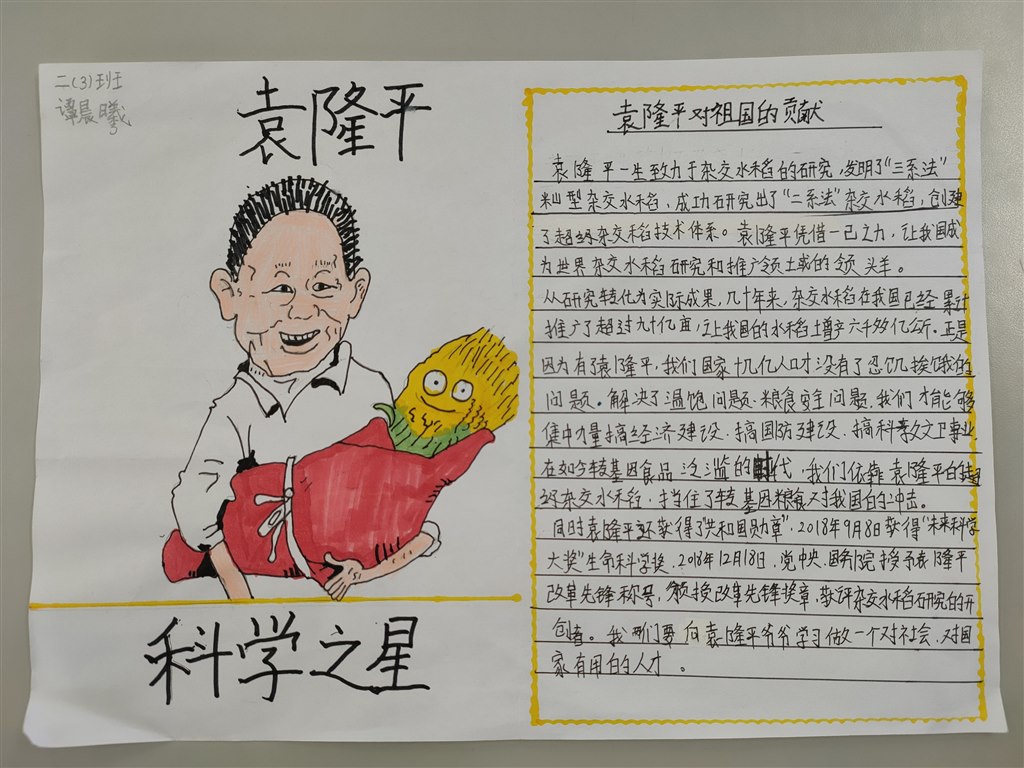 二(3)班
谭晨曦
袁隆平
科学之星
袁隆平对祖国的贡献
袁隆平一生致力于杂交水稻的研究，发明了"三系法"
籼型杂交水稻，成功研究出了"二系法"杂交水稻，创建
了超级杂交稻技术体系。袁隆平凭借一己之力，让我国成
为世界杂交水稻研究和推广领土或的领头羊。
从研究转化为实际成果，几十年来，杂交水稻在我国已经累计
推广了超过九十亿亩，让我国的水稻增产六千多亿公斤。正是
因为有了袁隆平，我们国家十几亿人口才没有了忍饥挨饿的
问题。解决了温饱问题、粮食安全问题，我们才能够
集中力量搞经济建设、搞国防建设、搞科教文卫事业
在如今转基因食品泛滥的时代，我们依靠袁隆平的超
级杂交水稻，挡住了转基因粮食对我国的冲击。
同时袁隆平还获得了"共和国勋章"，2018年9月8日获得"未来科学
大奖"生命科学奖，2018年12月18日，党中央、国务院授予袁隆平
改革先锋称号，颁授改革先锋奖章，获评杂交水稻研究的开
创者。我们要向袁隆平爷爷学习做一个对社会、对国
家有用的人才。